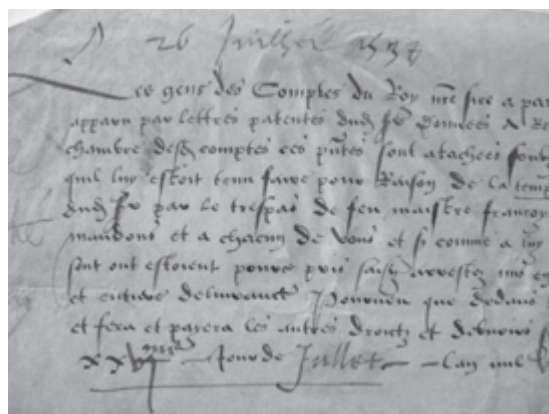 26 Juillet 153
Les gens des Comptes du Roy nre sire a par
apparu par lettres patentes dud Sr donnees a Re
chambre desd comptes ces pntes sont atachees soub
quil luy estoit tenu faire pour Raison de la temp
dud Sr par le trespas de feu maistre françoy
mandons et a chacun de vous et si comme a luy
sont ont estoient pource pris saisiz arrestez
et entiere delivrance Pourveu que dedans
et fera et payera les autres droictz et devoirs
XXVI Jour de Juillet Lan mil